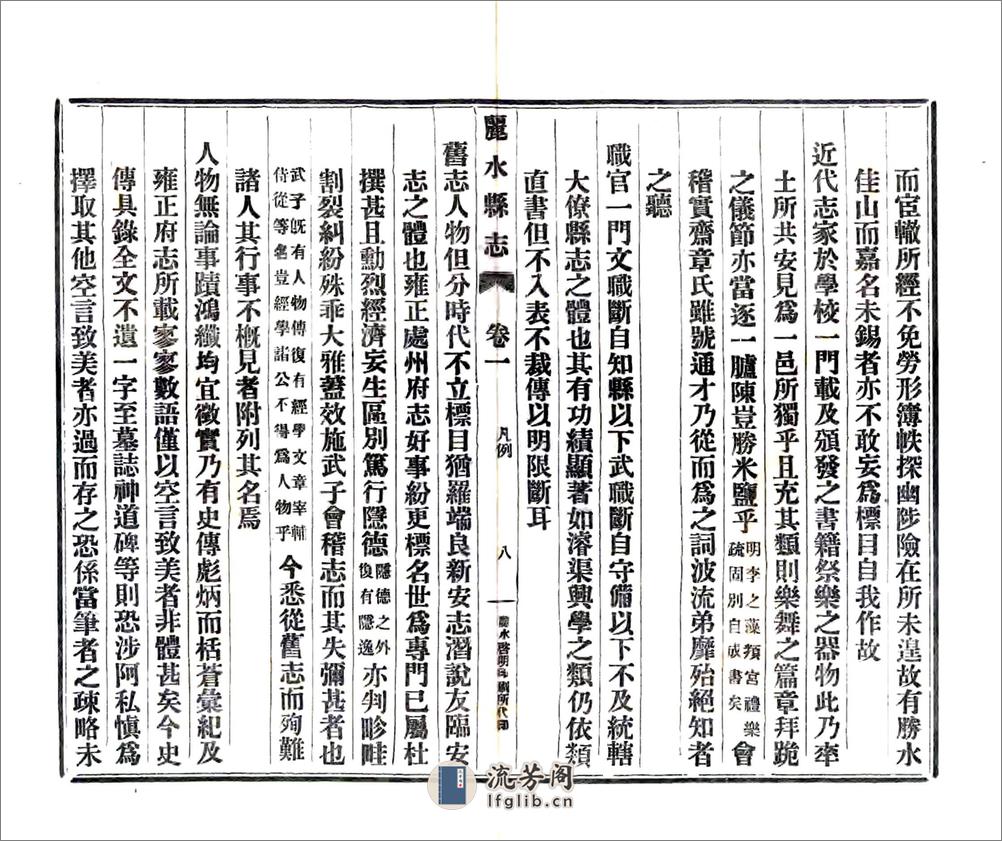 而宦轍所經不免勞形簿帙探幽陟險在所未遑故有勝水
佳山而嘉名未錫者亦不敢妄爲標目自我作故
近代志家於學校一門載及頒發之書籍祭樂之器物此乃率
土所共安見爲一邑所獨乎且充其類則樂舞之篇章拜跪
之儀節亦當逐一臚陳豈勝米鹽乎明李之藻頖宮禮樂疏固別自成書矣會
稽實齋章氏雖號通才乃從而爲之詞波流弟靡殆絕知者
之聽
職官一門文職斷自知縣以下武職斷自守備以下不及統轄
大僚縣志之體也其有功績顯著如濬渠興學之類仍依類
直書但不入表不裁傳以明限斷耳
麗水縣志 卷一 凡例 八 麗水啓明印刷所代印
舊志人物但分時代不立標目猶羅端良新安志潛說友臨安
志之體也雍正處州府志好事紛更標名世爲專門已屬杜
撰甚且勳烈經濟妄生區別篤行隱德隱德之外復有隱逸亦判畛畦
割裂糾紛殊乖大雅蓋效施武子會稽志而其失彌甚者也
武子既有人物傳復有經學文章宰輔侍從等名豈經學諸公不得爲人物乎今悉從舊志而殉難
諸人其行事不概見者附列其名焉
人物無論事蹟鴻纖均宜徵實乃有史傳彪炳而栝蒼彙紀及
雍正府志所載寥寥數語僅以空言致美者非體甚矣今史
傳具錄全文不遺一字至墓誌神道碑等則恐涉阿私慎爲
擇取其他空言致美者亦過而存之恐係當筆者之疎略未
流芳阁
lfglib.cn